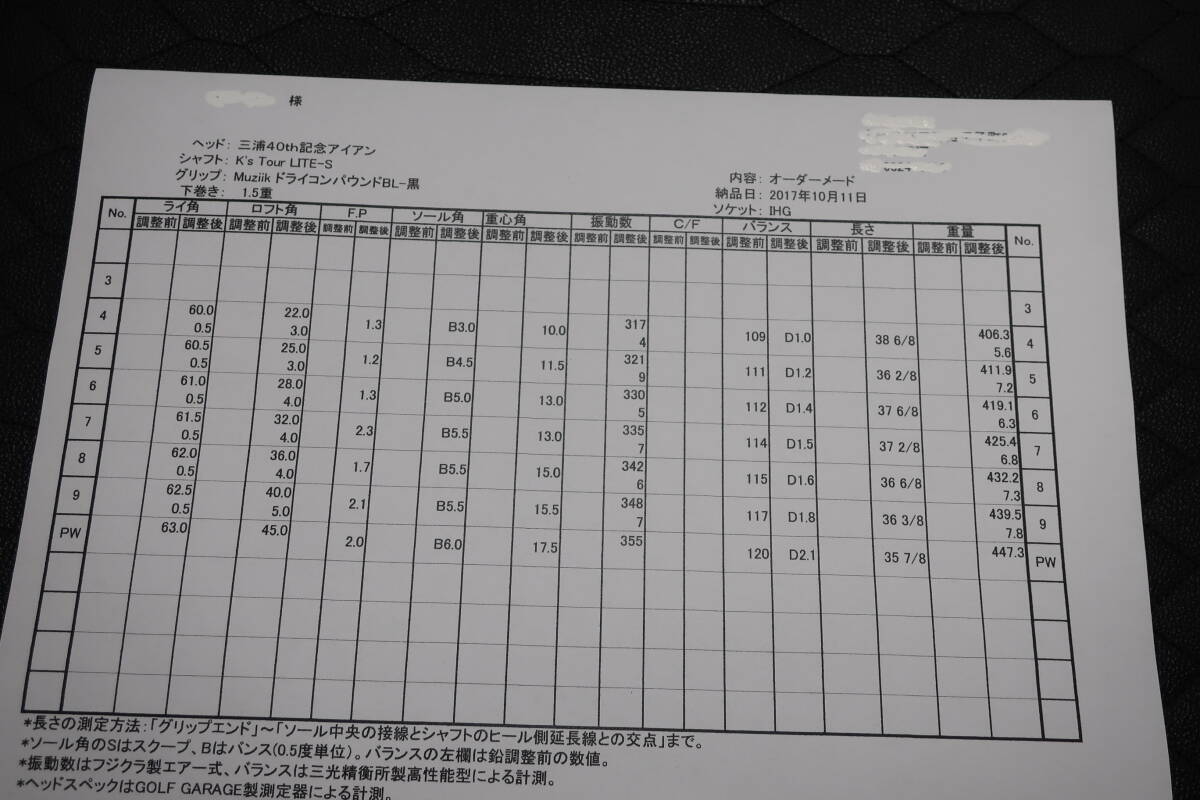 様
ヘッド: 三浦40th記念アイアン
シャフト: K's Tour LITE-S
グリップ: Muziik ドライコンパウンドBL-黒
下巻き: 1.5重
内容: オーダーメード
納品日: 2017年10月11日
ソケット: IHG
No. ライ角 ロフト角 F.P ソール角 重心角 振動数 C/F バランス 長さ 重量 No.
調整前 調整後 調整前 調整後 調整前 調整後 調整前 調整後 調整前 調整後 調整前 調整後 調整前 調整後 調整前 調整後 調整前 調整後 調整前 調整後
3 3
4 60.0 22.0 1.3 B3.0 10.0 317 109 D1.0 38 6/8 406.3 4
0.5 3.0 4 5.6
5 60.5 25.0 1.2 B4.5 11.5 321 111 D1.2 36 2/8 411.9 5
0.5 3.0 9 7.2
6 61.0 28.0 1.3 B5.0 13.0 330 112 D1.4 37 6/8 419.1 6
0.5 4.0 5 6.3
7 61.5 32.0 2.3 B5.5 13.0 335 114 D1.5 37 2/8 425.4 7
0.5 4.0 7 6.8
8 62.0 36.0 1.7 B5.5 15.0 342 115 D1.6 36 6/8 432.2 8
0.5 4.0 6 7.3
9 62.5 40.0 2.1 B5.5 15.5 348 117 D1.8 36 3/8 439.5 9
0.5 5.0 7 7.8
PW 63.0 45.0 2.0 B6.0 17.5 355 120 D2.1 35 7/8 447.3 PW
*長さの測定方法:「グリップエンド」~「ソール中央の接線とシャフトのヒール側延長線との交点」まで。
*ソール角のSはスクープ、Bはバンス(0.5度単位)。バランスの左欄は鉛調整前の数値。
*振動数はフジクラ製エアー式、バランスは三光精衡所製高性能型による計測。
*ヘッドスペックはGOLF GARAGE製測定器による計測。